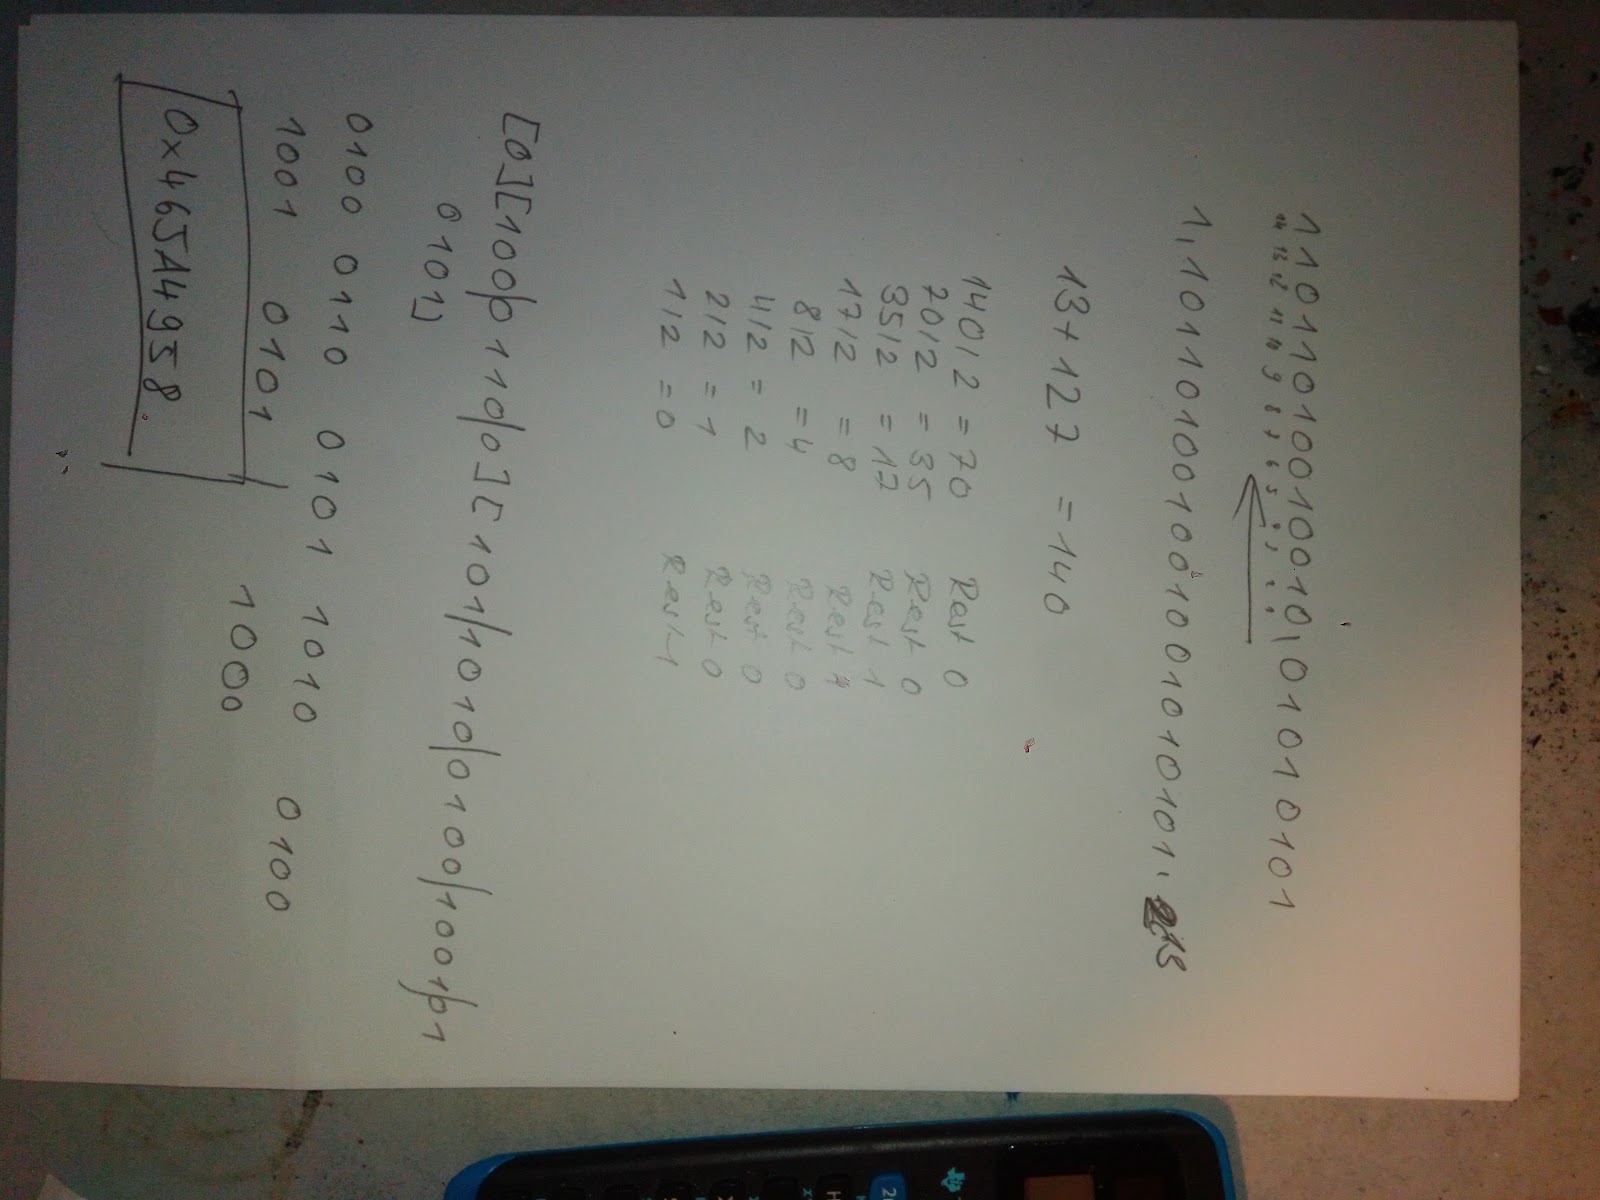 11011010010010,01010101
14 13 12 11 10 9 8 7 6 5 4 3 2 1
1,101101001001001010101 · 2^13
13+127 = 140
140/2 = 70 Rest 0
70/2 = 35 Rest 0
35/2 = 17 Rest 1
17/2 = 8 Rest 1
8/2 = 4 Rest 0
4/2 = 2 Rest 0
2/2 = 1 Rest 0
1/2 = 0 Rest 1
[0][100/0110/0][101/1010/0100/1001/01
0101]
0100 0110 0101 1010 0100
1001 0101 1000
0x465A4958